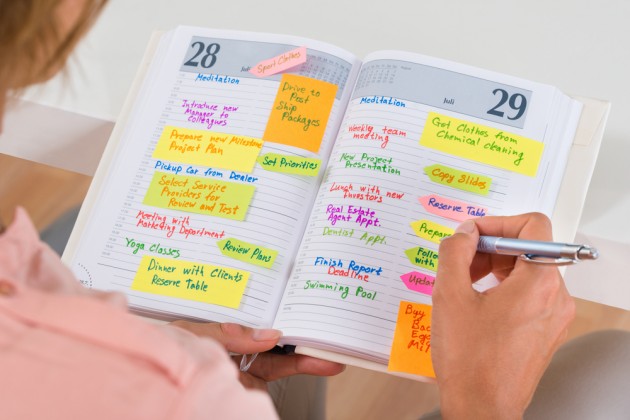 28
Juli
Sport Clothes
Meditation
Drive to
Post
Ship
Packages
Introduce new
Manager to
Colleagues
Prepare new Milestone
Project Plan
Set Priorities
Pickup Car from Dealer
Select Service
Providers for
Review and Test
Meeting with
Marketing Department
Review Plans
Yoga Classes
Dinner with Clients
Reserve Table
Juli
29
Meditation
Get Clothes from
Chemical cleaning
Weekly team
meeting
New Project
Presentation
Copy Slides
Lunch with new
Investors
Reserve Table
Real Estate
Agent Appt.
Prepare
Dentist Appt.
Follow
with
Finish Report
Deadline
Update
Swimming Pool
Buy